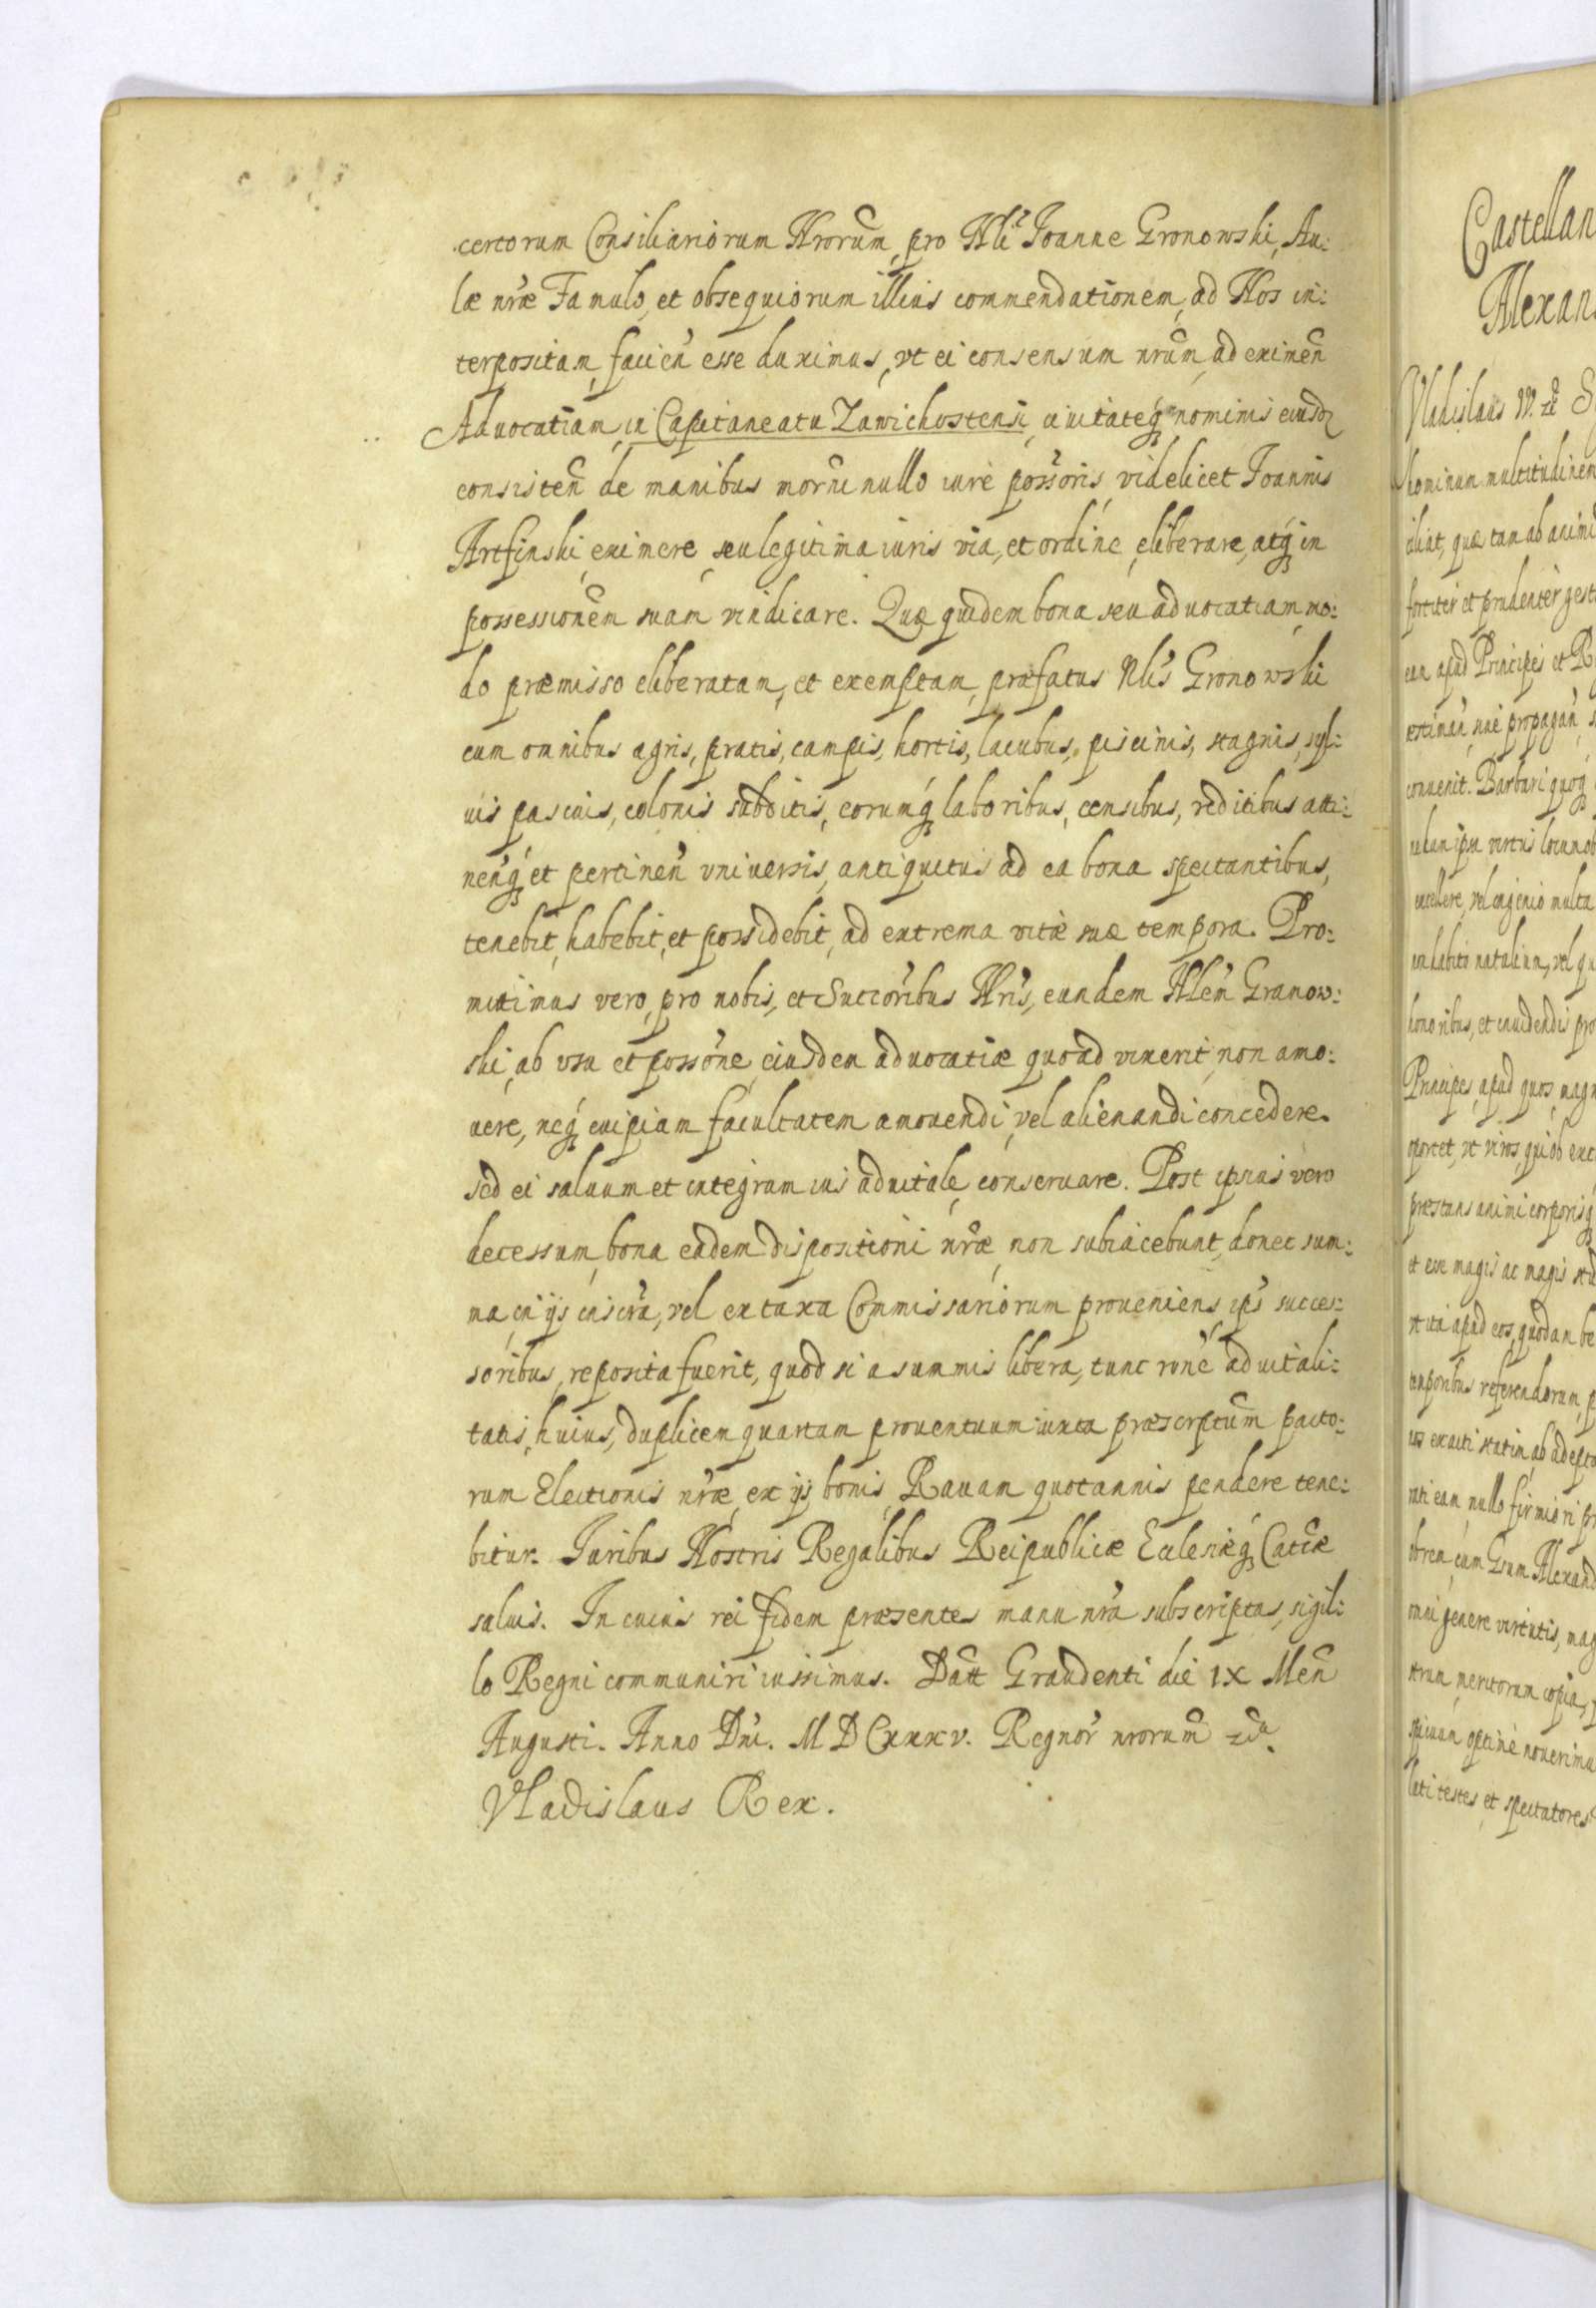 certorum Consiliariorum Nrorum, pro Nli Joanne Gronowski, Au:
læ nræ Famulo, et obsequiorum illius commendationem, ad Nos in:
terpositam, facien esse duximus, vt ei consensum nrum, ad eximen
Aduocatiam, in Capitaneatu Zawichostensi, ciuitateq nominis eiusdem
consisten de manibus moderni nullo iure possoris, videlicet Joannis
eximere, seu legitima iuris via, et ordine, eliberare, atq in
possessionem suam vindicare. Quæ quidem bona seu aduocatiam, mo:
do præmisso eliberatam, et exemptam, præfatus Nlis Gronowski
cum omnibus agris, pratis, campis, hortis, lacubus, piscinis, stagnis, syl:
uis pascuis, colonis subditis, eorumq laboribus, censibus, reditibus atti:
nenq et pertinen vniuersis, antiquitus ad ea bona spectantibus,
tenebit, habebit, et possidebit, ad extrema vitæ suæ tempora. Pro:
mittimus vero, pro nobis, et Succoribus Nris, eundem Nlem Granow:
ski, ab vsu et possone, eiusdem aduocatiæ quoad vixerit, non amo:
uere, neq cuipiam facultatem amouendi, vel alienandi concedere.
sed ei saluum et integrum ius aduitale, conseruare. Post ipsius vero
decessum, bona eadem dispositioni nræ, non subiacebunt, donec sum:
ma, in ijs inscra, vel ex taxa Commissariorum proueniens ips succes:
soribus, reposita fuerit, quod si a summis libera, tunc rone aduitali:
tatis, huius, duplicem quartam prouentuum iuxta præscrptum pacto:
rum Electionis nræ, ex ijs bonis, Rauam quotannis pendere tene:
bitur. Juribus Nostris Regalibus Reipublicæ Eclesiæq Catcæ
saluis. In cuius rei fidem præsentes manu nra subscriptas, sigil:
lo Regni communiri iussimus. Datt Graudenti die IX Men
Augusti. Anno Dni. MDCXXXV. Regnor nrorum
Vladislaus Rex.
Castellan
Alexan
Vladislaus IV.
hominum multitudinem
ciliat, quæ tam ab animi
fortiter et prudenter gest
eam apud Principes et R
propagan
conuenit. Barbari quoq
excellere, vel ingenio multa
natalium, vel qu
honoribus, et inuidendis pro
Principes, apud quos magn
oportet, vt viros, qui ob
præstans animi corporisq
et esse magis ac magis
vt ita apud eos, quodam be
temporibus referendorum, p
exacti statim ab adepto
rati eam, nullo firmiori pr
cum Gsum Alexand
omni genere virtutis, mag
meritorum copia,
optime nouerimus
testes et spectatores